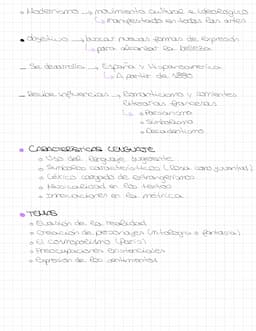 • Modernismo → movimiento cultural e ideológico
↳ manifestado en todas las artes
• objetivo → buscar nuevas formas de expresión
↳ para alcanzar la belleza
- Se desarrolla → España y Hispanoamérica
↳ A partir de 1880
- Recibe influencias → Romanticismo y corrientes
literarias francesas
↳ Parnasianismo
Simbolismo
Decadentismo
• CARACTERÍSTICAS LENGUAJE
Uso del lenguaje sugerente
Símbolos característicos (Rosa como juventud)
Léxico cargado de extranjerismos
Musicalidad en los textos
Innovaciones en la métrica
• TEMAS
Evasión de la realidad
Creación de personajes (mitología o fantasía)
El cosmopolitismo (París)
Preocupaciones existenciales
Expresión de los sentimientos